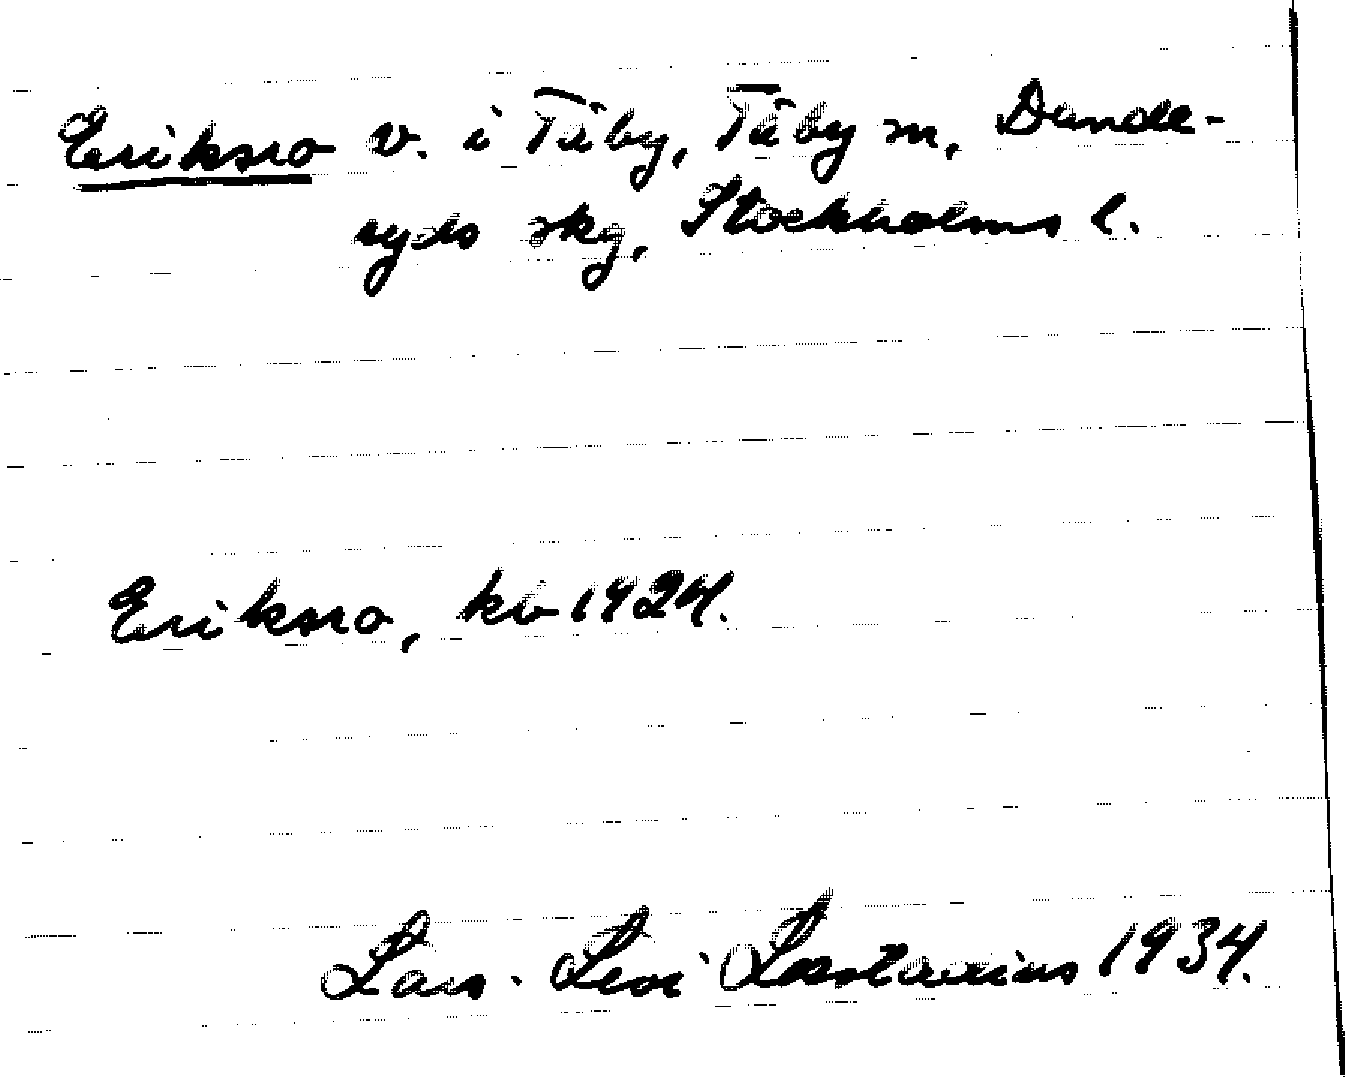 Eriksro v. i Täby, Täby sn, Dande-
ryds skg, Stockholms l.
Eriksro, kb 1924.
Lars-Levi Læstadius 1934.